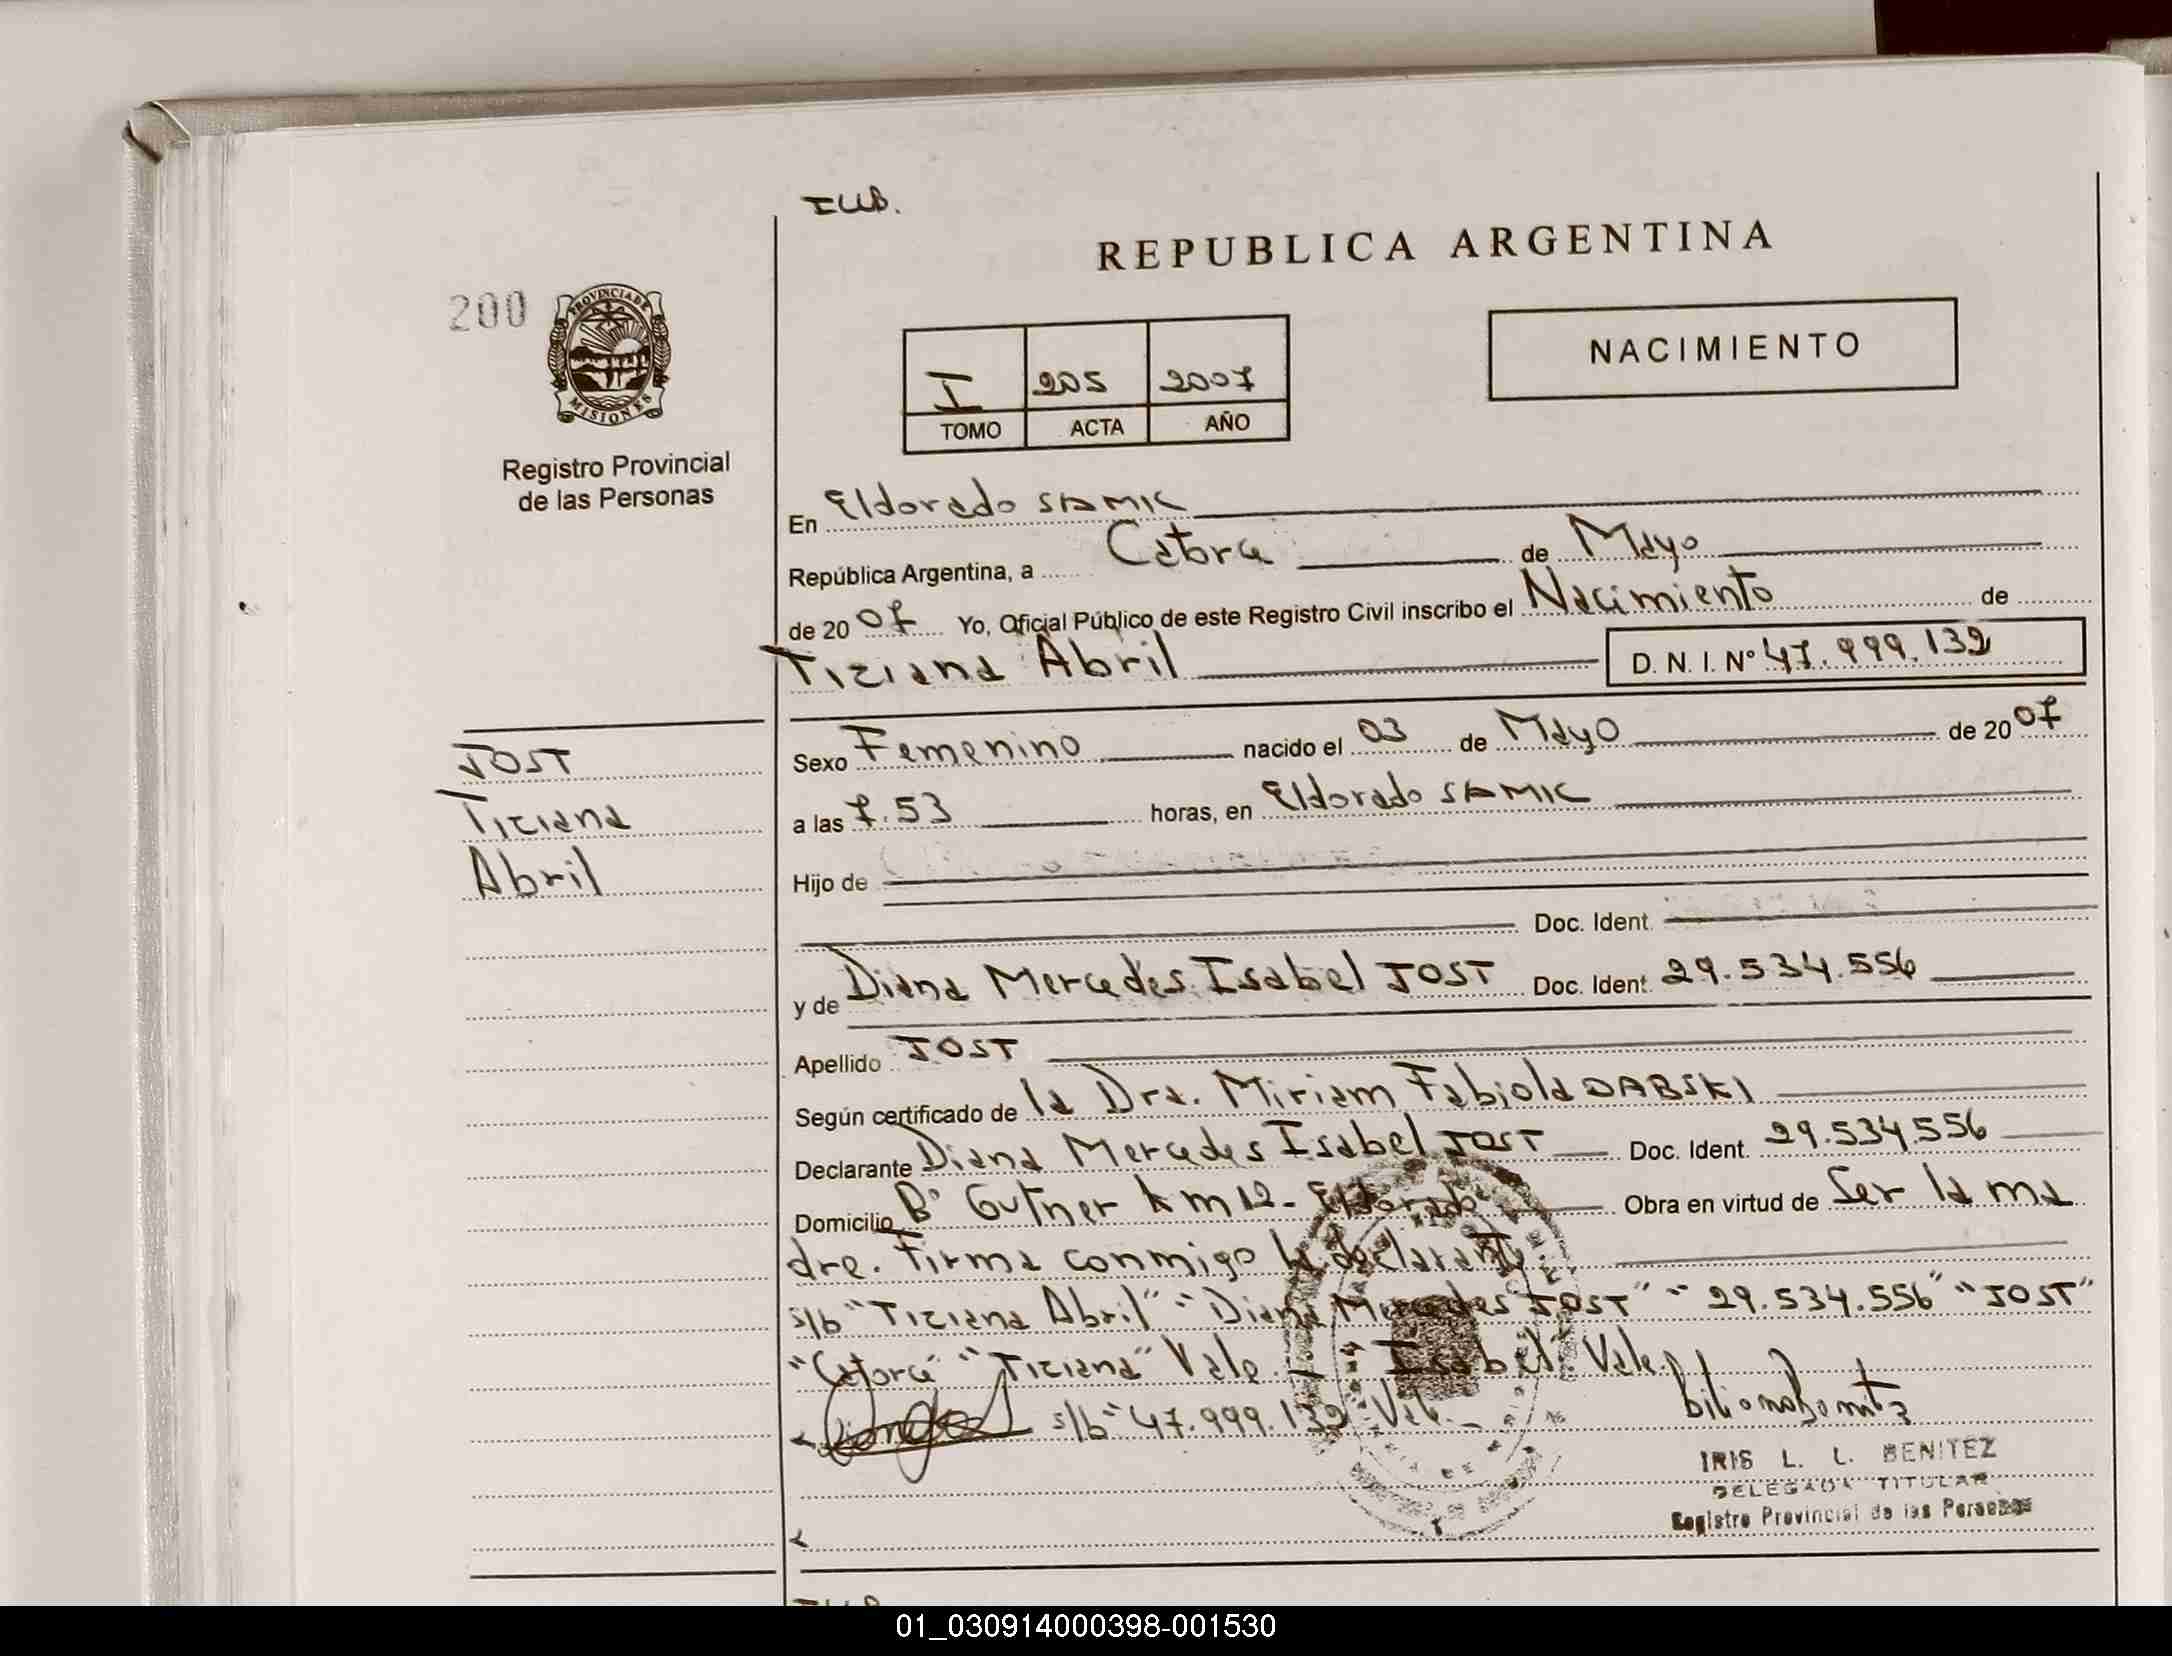 IUB.
REPUBLICA ARGENTINA
200
PROVINCIA DE
MISIONES
Registro Provincial
de las Personas
NACIMIENTO
I 205 2007
TOMO ACTA AÑO
En Eldorado SAMIC
República Argentina, a Catorce de Mayo
de 2007 Yo, Oficial Público de este Registro Civil inscribo el Nacimiento de
Tiziana Abril D. N. I. Nº 47.999.132
JOST
Tiziana
Abril
Sexo Femenino nacido el 03 de Mayo de 2007
a las 7.53 horas, en Eldorado SAMIC
Hijo de
Doc. Ident.
y de Diana Mercedes Isabel JOST Doc. Ident. 29.534.556
Apellido JOST
Según certificado de la Dra. Miriam Fabiola DABSKI
Declarante Diana Mercedes Isabel JOST Doc. Ident. 29.534.556
Domicilio Bº Gutner km 12 - Eldorado Obra en virtud de Ser la ma
dre. Firma conmigo la declarante
s/b "Tiziana Abril" "Diana Mercedes JOST" "29.534.556" "JOST"
"Catorce" "Tiziana" Vale. "Isabel" Vale.
s/b "47.999.132 Vale.
IRIS L. L. BENITEZ
DELEGADA TITULAR
Registro Provincial de las Personas
01_030914000398-001530